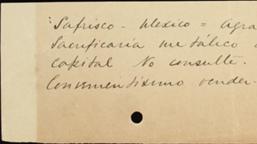 "Safrisco - Mexico = Agra
Sacrificaria metálico
capital No consulte.
Convenientísimo vender.